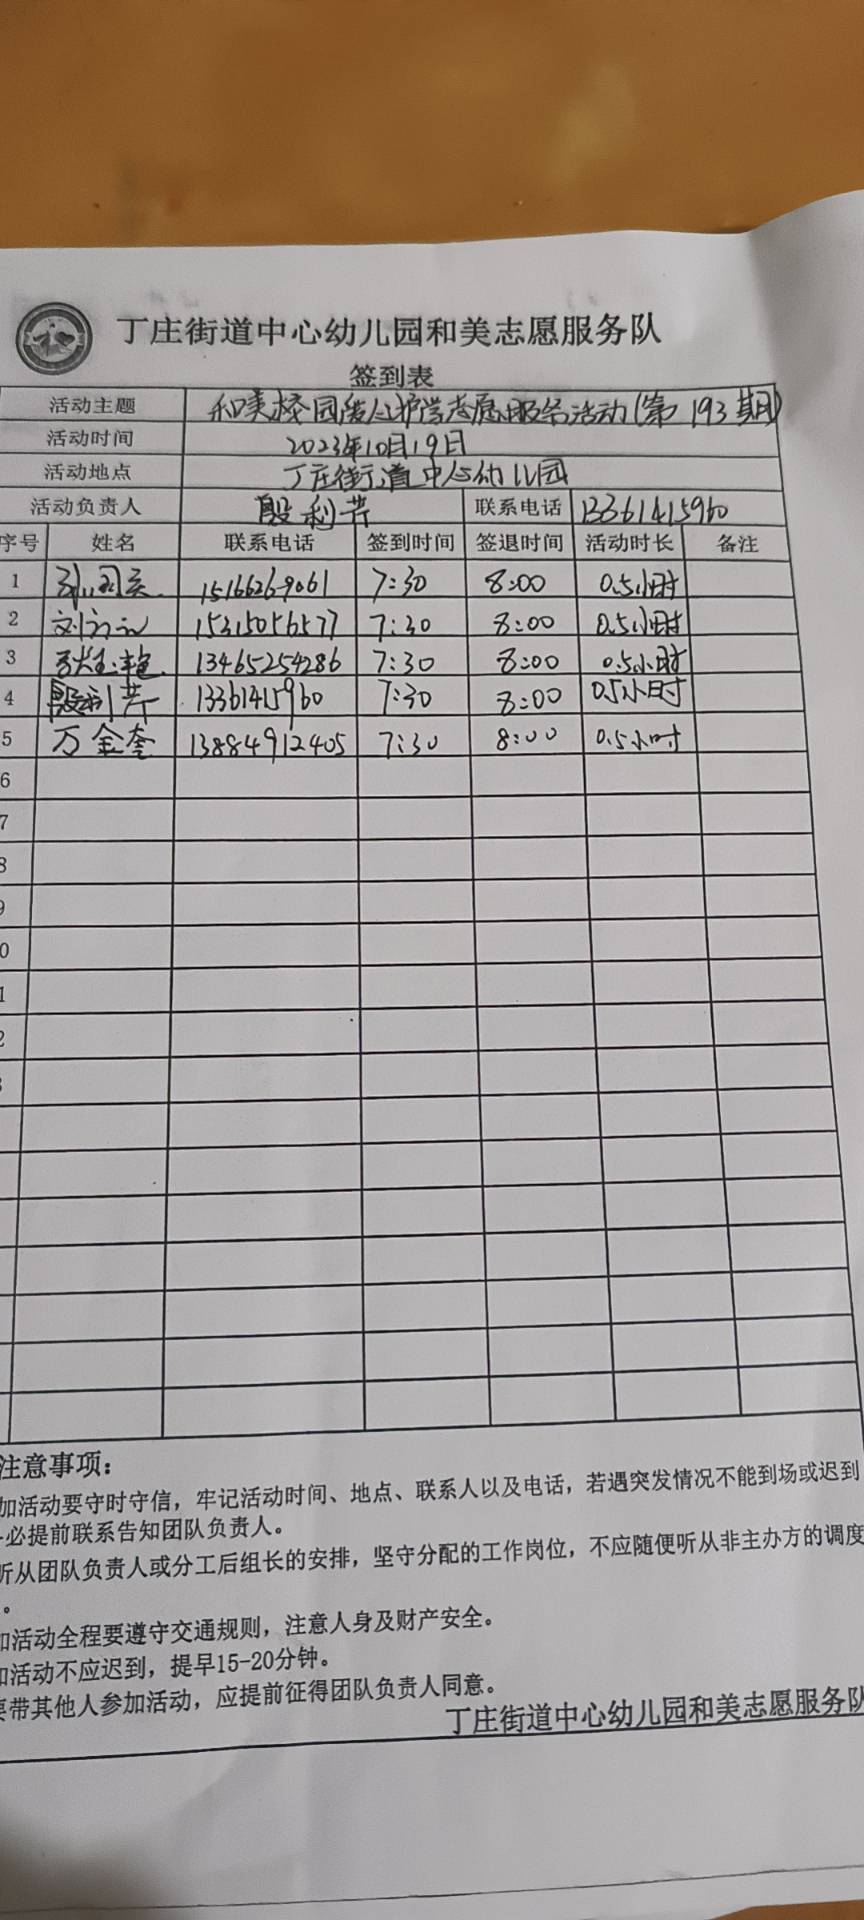 丁庄街道中心幼儿园和美志愿服务队
签到表
活动主题 和美校园 爱心护学志愿服务活动(第193期)
活动时间 2023年10月19日
活动地点 丁庄街道中心幼儿园
活动负责人 殷利芹 联系电话 13361415960
序号 姓名 联系电话 签到时间 签退时间 活动时长 备注
1 15166269061 7:30 8:00 0.5小时
2 15315056577 7:30 8:00 0.5小时
3 13465254286 7:30 8:00 0.5小时
4 殷利芹 13361415960 7:30 8:00 0.5小时
5 万金奎 13884912405 7:30 8:00 0.5小时
6
7
8
9
0
1
2
3
注意事项:
加活动要守时守信，牢记活动时间、地点、联系人以及电话，若遇突发情况不能到场或迟到
必提前联系告知团队负责人。
听从团队负责人或分工后组长的安排，坚守分配的工作岗位，不应随便听从非主办方的调度
。
加活动全程要遵守交通规则，注意人身及财产安全。
加活动不应迟到，提早15-20分钟。
要带其他人参加活动，应提前征得团队负责人同意。
丁庄街道中心幼儿园和美志愿服务队